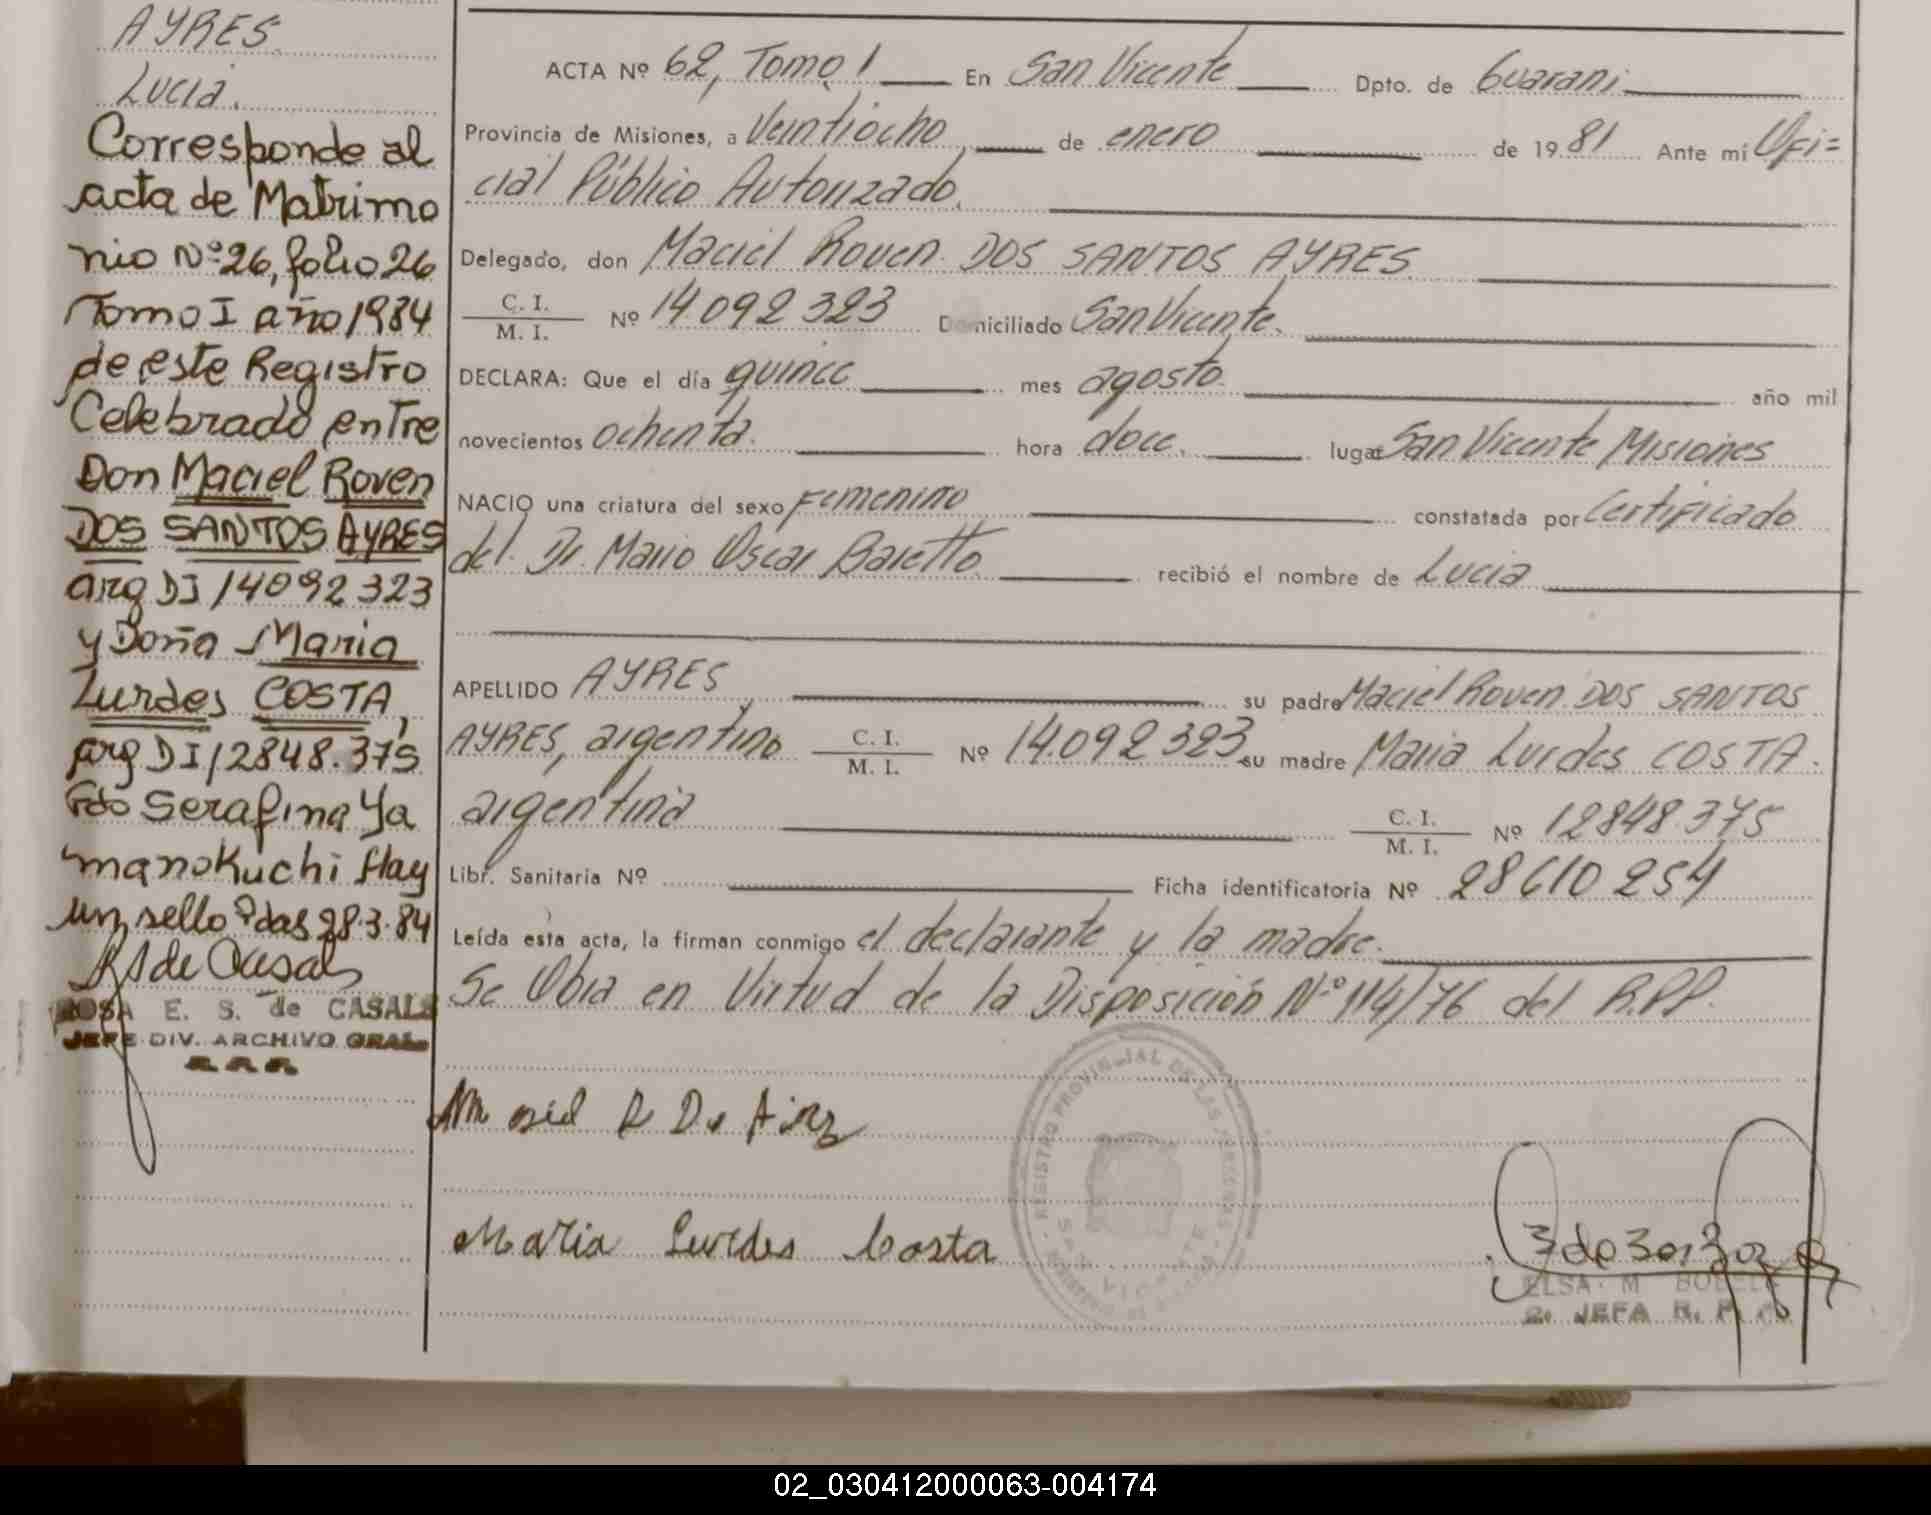 AYRES
Lucia.
Corresponde al
acta de Matrimo
nio Nº 26, folio 26
Tomo I año 1984
de este Registro
Celebrado entre
Don Maciel Roven
DOS SANTOS AYRES
arg DI 14092323
y Doña Maria
Lurdes COSTA,
arg DI 12848.375
Fdo Serafina Ya
manokuchi Hay
un sello Pdas 28.3.84
RS de Casals
ROSA E. S. de CASALS
JEFE DIV. ARCHIVO GRAL.
ACTA Nº 62, Tomo I En San Vicente Dpto. de Guarani
Provincia de Misiones, a Veintiocho de enero de 1981 Ante mí Ofi=
cial Público Autorizado.
Delegado, don Maciel Roven DOS SANTOS AYRES
C. I. / M. I. Nº 14.092.323 Domiciliado San Vicente.
DECLARA: Que el día quince mes agosto año mil
novecientos ochenta. hora doce. lugar San Vicente Misiones
NACIO una criatura del sexo Femenino constatada por Certificado
del Dr. Mario Oscar Baretto recibió el nombre de Lucia
APELLIDO AYRES su padre Maciel Roven DOS SANTOS
AYRES, argentino C. I. / M. I. Nº 14.092.323 su madre Maria Lurdes COSTA.
argentina C. I. / M. I. Nº 12848.375
Libr. Sanitaria Nº Ficha identificatoria Nº 28610254
Leída esta acta, la firman conmigo el declarante y la madre.
Se Obra en Virtud de la Disposición Nº 114/76 del R.P.P.
REGISTRO PROVINCIAL DE LAS PERSONAS
SAN VICENTE
Maria Lurdes Costa
ELSA M
2. JEFA R. P.
02_030412000063-004174